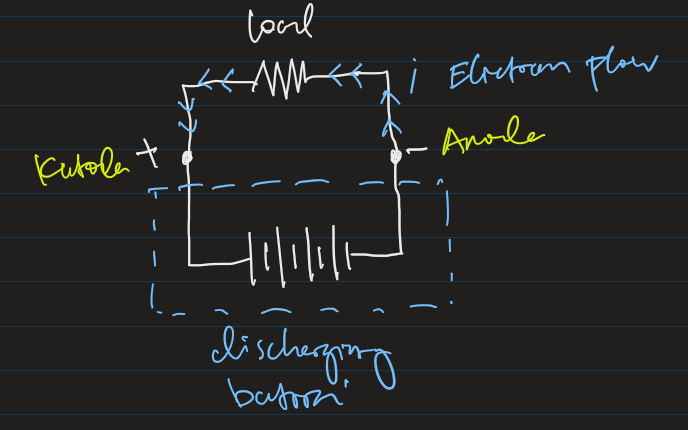 Load
i Elektron flow
+
- Anode
Katode
discherging
batton